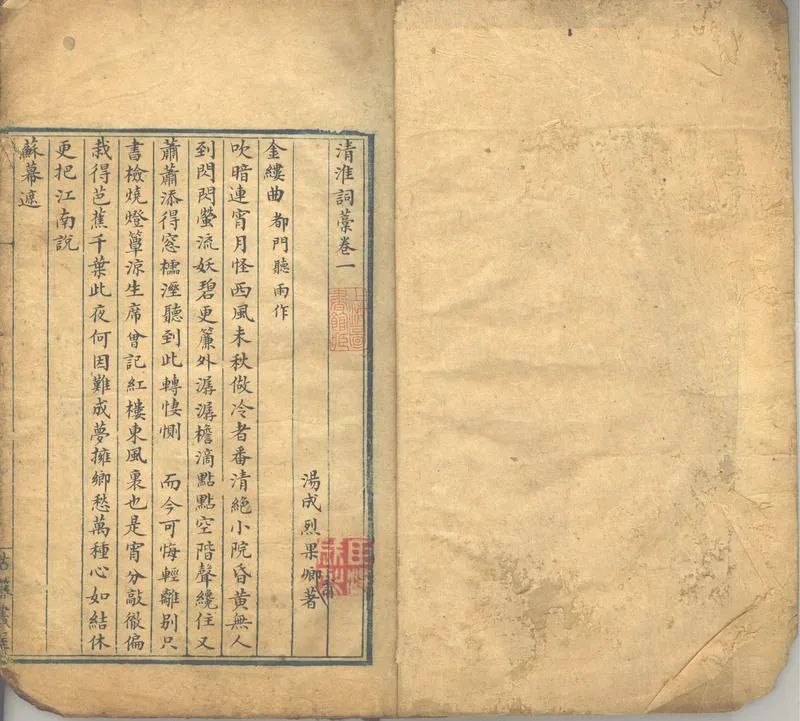 清淮詞藁卷一
湯成烈果卿著
金縷曲 都門聽雨作
吹暗連宵月怪西風未秋做冷者番清絕小院昏黃無人
到閃閃螢流妖碧更簾外潺潺檐滴點點空階聲纔住又
蕭蕭添得窓櫺溼聽到此轉悽惻 而今可悔輕離別只
書檢燒燈簟涼生席曾記紅樓東風裏也是宵分敲徹偏
栽得芭蕉千葉此夜何因難成夢擁鄉愁萬種心如結休
更把江南說
蘇幕遮
上海圖書館藏